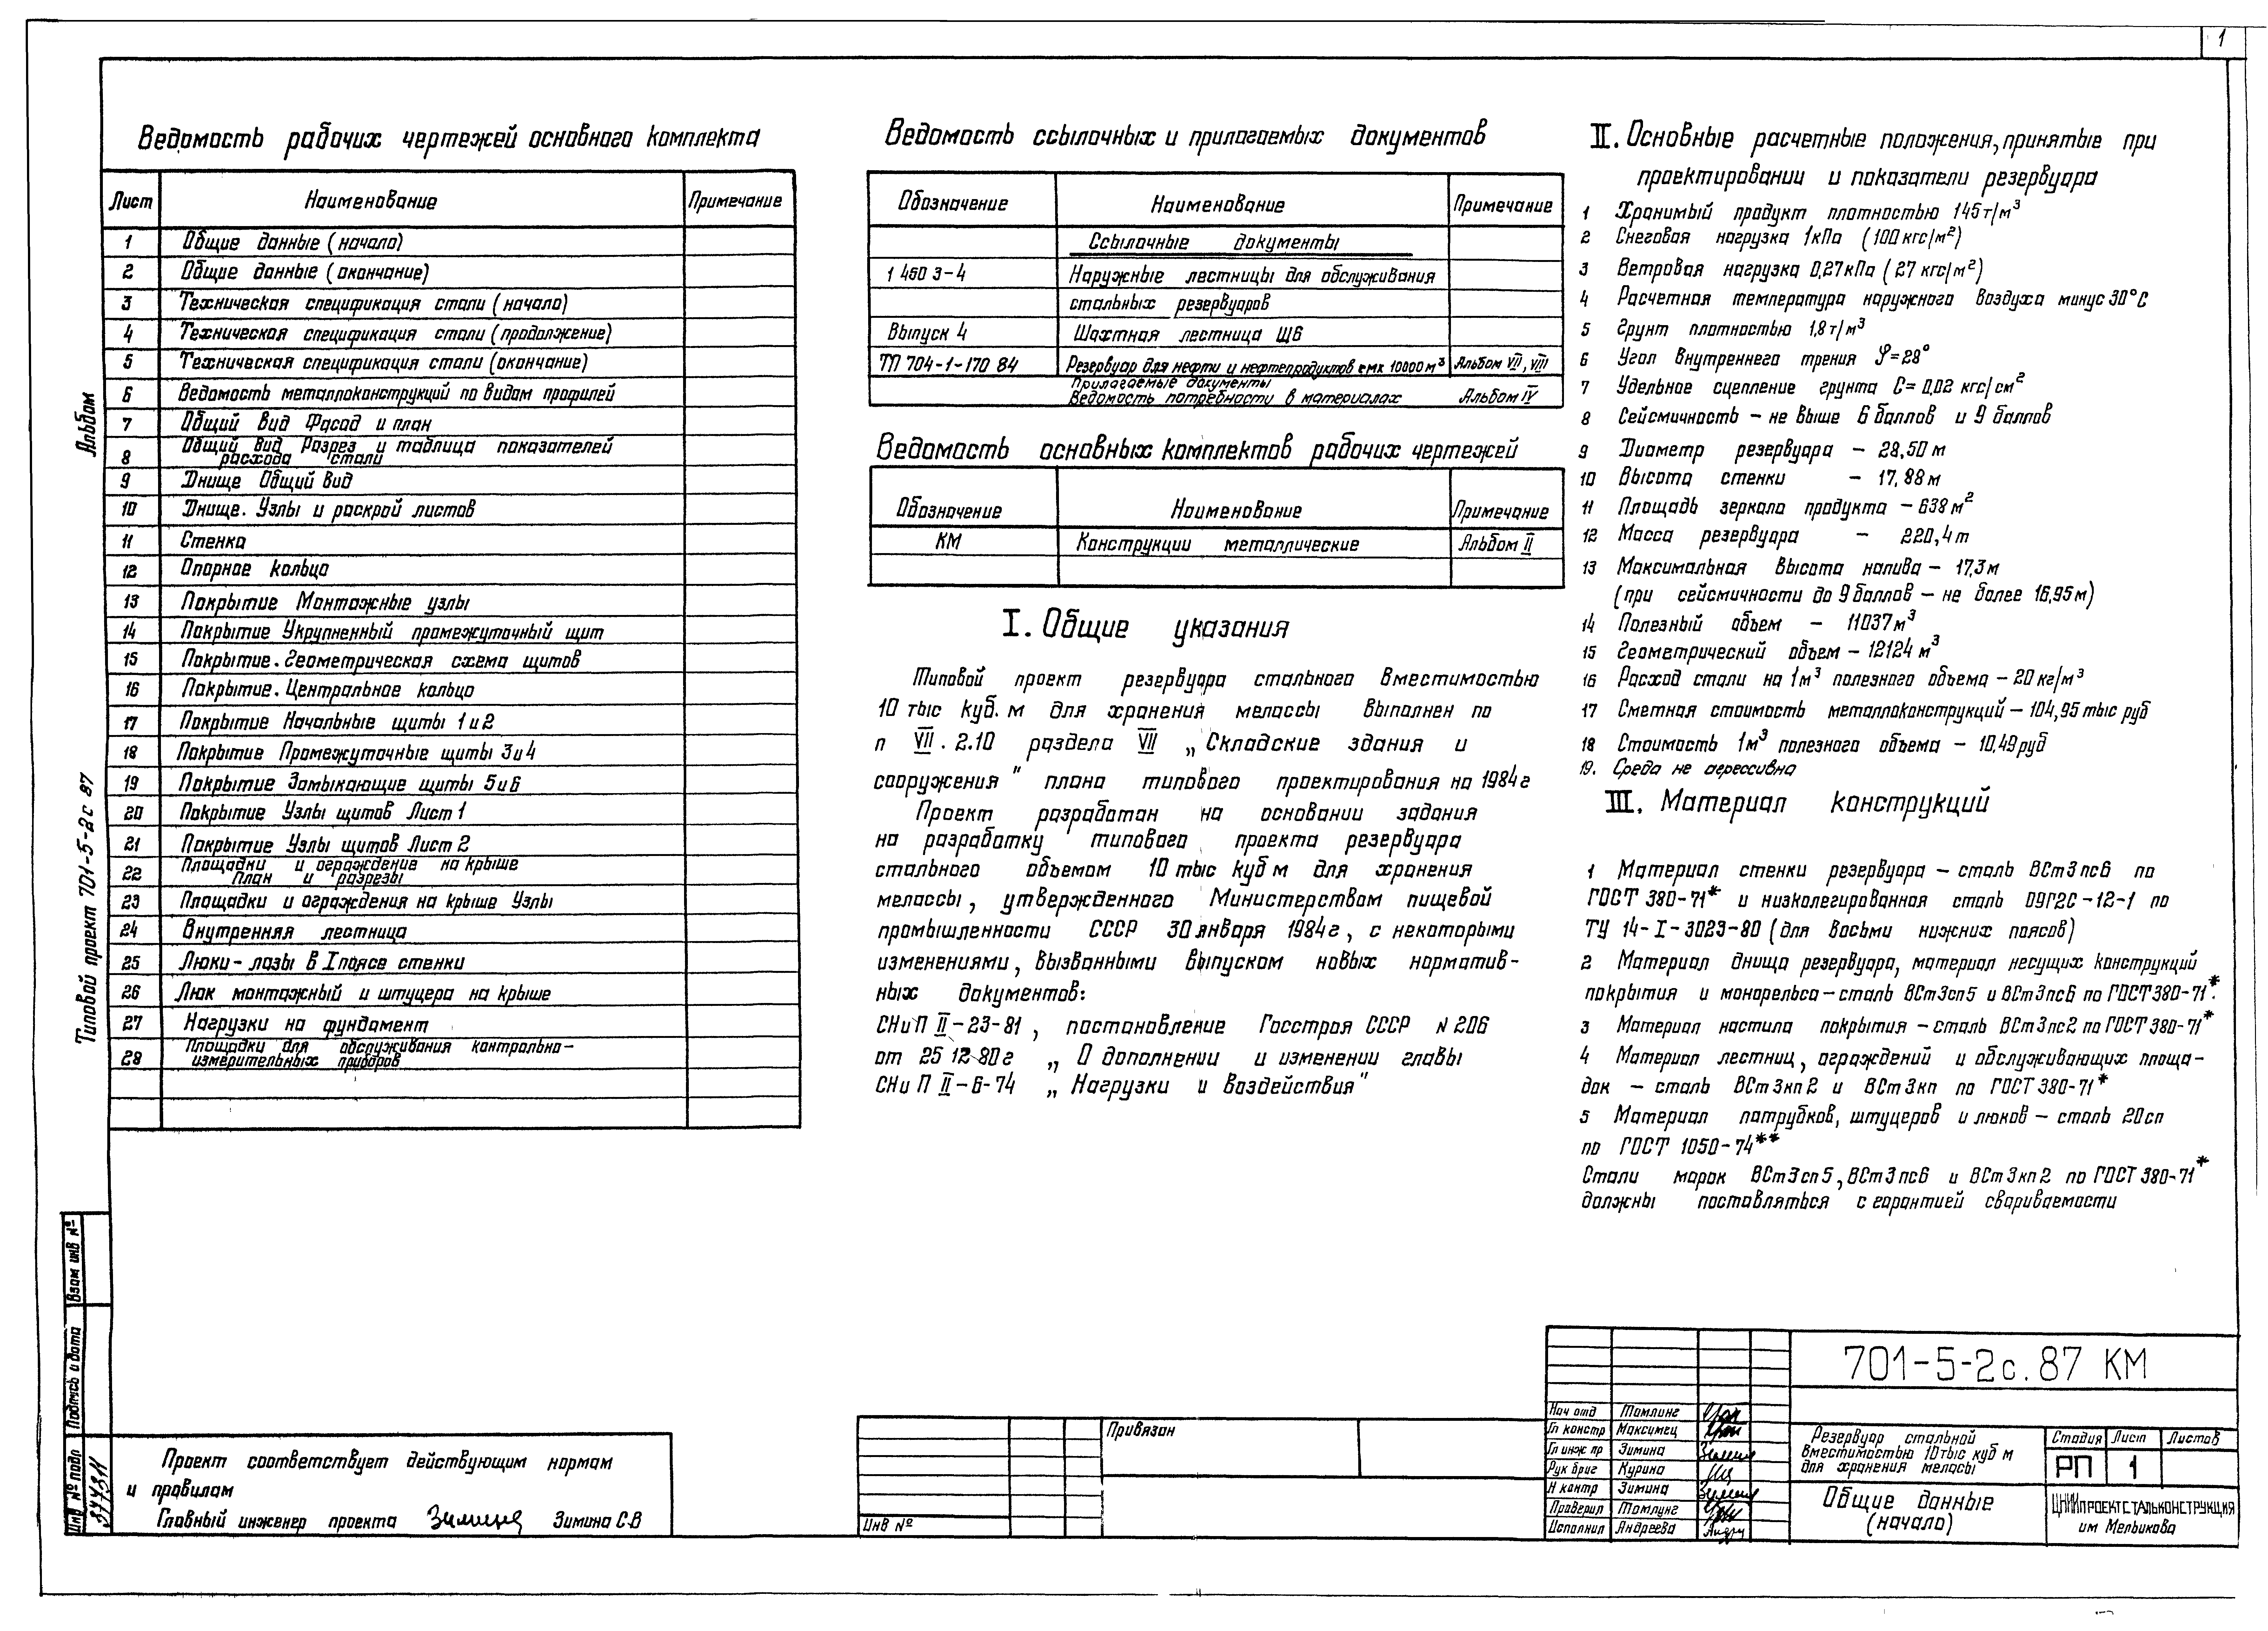 1
Альбом
Типовой проект 701-5-2с 87
Ведомость рабочих чертежей основного комплекта
Лист Наименование Примечание
1 Общие данные (начало)
2 Общие данные (окончание)
3 Техническая спецификация стали (начало)
4 Техническая спецификация стали (продолжение)
5 Техническая спецификация стали (окончание)
6 Ведомость металлоконструкций по видам профилей
7 Общий вид Фасад и план
8 Общий вид Разрез и таблица показателей
расхода стали
9 Днище Общий вид
10 Днище. Узлы и раскрой листов
11 Стенка
12 Опорное кольцо
13 Покрытие Монтажные узлы
14 Покрытие Укрупненный промежуточный щит
15 Покрытие. Геометрическая схема щитов
16 Покрытие. Центральное кольцо
17 Покрытие Начальные щиты 1 и 2
18 Покрытие Промежуточные щиты 3 и 4
19 Покрытие Замыкающие щиты 5 и 6
20 Покрытие Узлы щитов Лист 1
21 Покрытие Узлы щитов Лист 2
22 Площадки и ограждение на крыше
План и разрезы
23 Площадки и ограждения на крыше Узлы
24 Внутренняя лестница
25 Люки-лазы в I поясе стенки
26 Люк монтажный и штуцера на крыше
27 Нагрузки на фундамент
28 Площадки для обслуживания контрольно-
измерительных приборов
Ведомость ссылочных и прилагаемых документов
Обозначение Наименование Примечание
Ссылочные документы
1 450 3-4 Наружные лестницы для обслуживания
стальных резервуаров
Выпуск 4 Шахтная лестница Щ6
ТП 704-1-170 84 Резервуар для нефти и нефтепродуктов емк 10000 м³ Альбом VII, VIII
Прилагаемые документы
Ведомость потребности в материалах Альбом IV
Ведомость основных комплектов рабочих чертежей
Обозначение Наименование Примечание
КМ Конструкции металлические Альбом II
I. Общие указания
Типовой проект резервуара стального вместимостью
10 тыс куб. м для хранения мелассы выполнен по
п VII. 2.10 раздела VII „Складские здания и
сооружения" плана типового проектирования на 1984г
Проект разработан на основании задания
на разработку типового проекта резервуара
стального объемом 10 тыс куб м для хранения
мелассы, утвержденного Министерством пищевой
промышленности СССР 30 января 1984г, с некоторыми
изменениями, вызванными выпуском новых норматив-
ных документов:
СНиП II-23-81, постановление Госстроя СССР N 206
от 25 12 80г „О дополнении и изменении главы
СНиП II-6-74 „Нагрузки и воздействия"
II. Основные расчетные положения, принятые при
проектировании и показатели резервуара
1 Хранимый продукт плотностью 1 45 т/м³
2 Снеговая нагрузка 1 кПа (100 кгс/м²)
3 Ветровая нагрузка 0,27 кПа (27 кгс/м²)
4 Расчетная температура наружного воздуха минус 30°С
5 Грунт плотностью 1,8 т/м³
6 Угол внутреннего трения φ=28°
7 Удельное сцепление грунта С= 0,02 кгс/см²
8 Сейсмичность – не выше 6 баллов и 9 баллов
9 Диаметр резервуара – 28,50 м
10 Высота стенки – 17,88 м
11 Площадь зеркала продукта – 638 м²
12 Масса резервуара – 220,4 т
13 Максимальная высота налива – 17,3 м
(при сейсмичности до 9 баллов – не более 16,95 м)
14 Полезный объем – 11037 м³
15 Геометрический объем – 12124 м³
16 Расход стали на 1 м³ полезного объема – 20 кг/м³
17 Сметная стоимость металлоконструкций – 104,95 тыс руб
18 Стоимость 1 м³ полезного объема – 10,49 руб
19. Среда не агрессивна
III. Материал конструкций
1 Материал стенки резервуара – сталь ВСт3пс6 по
ГОСТ 380-71* и низколегированная сталь 09Г2С-12-1 по
ТУ 14-I-3023-80 (для восьми нижних поясов)
2 Материал днища резервуара, материал несущих конструкций
покрытия и монорельса – сталь ВСт3сп5 и ВСт3пс6 по ГОСТ 380-71*.
3 Материал настила покрытия – сталь ВСт3пс2 по ГОСТ 380-71*
4 Материал лестниц, ограждений и обслуживающих площа-
док – сталь ВСт3кп2 и ВСт3кп по ГОСТ 380-71*
5 Материал патрубков, штуцеров и люков – сталь 20сп
по ГОСТ 1050-74**
Стали марок ВСт3сп5, ВСт3пс6 и ВСт3кп2 по ГОСТ 380-71*
должны поставляться с гарантией свариваемости
Взам инв №
Подпись и дата
Инв № подл
Проект соответствует действующим нормам
и правилам
Главный инженер проекта Зимина С.В
Привязан
Инв №
701-5-2с.87 КМ
Нач отд Томлинг
Гл констр Максимец
Гл инж пр Зимина
Рук бриг Курина
Н контр Зимина
Проверил Томлинг
Исполнил Андреева
Резервуар стальной
вместимостью 10 тыс куб м
для хранения меласы
Стадия Лист Листов
РП 1
Общие данные
(начало)
ЦНИИПРОЕКТСТАЛЬКОНСТРУКЦИЯ
им Мельникова